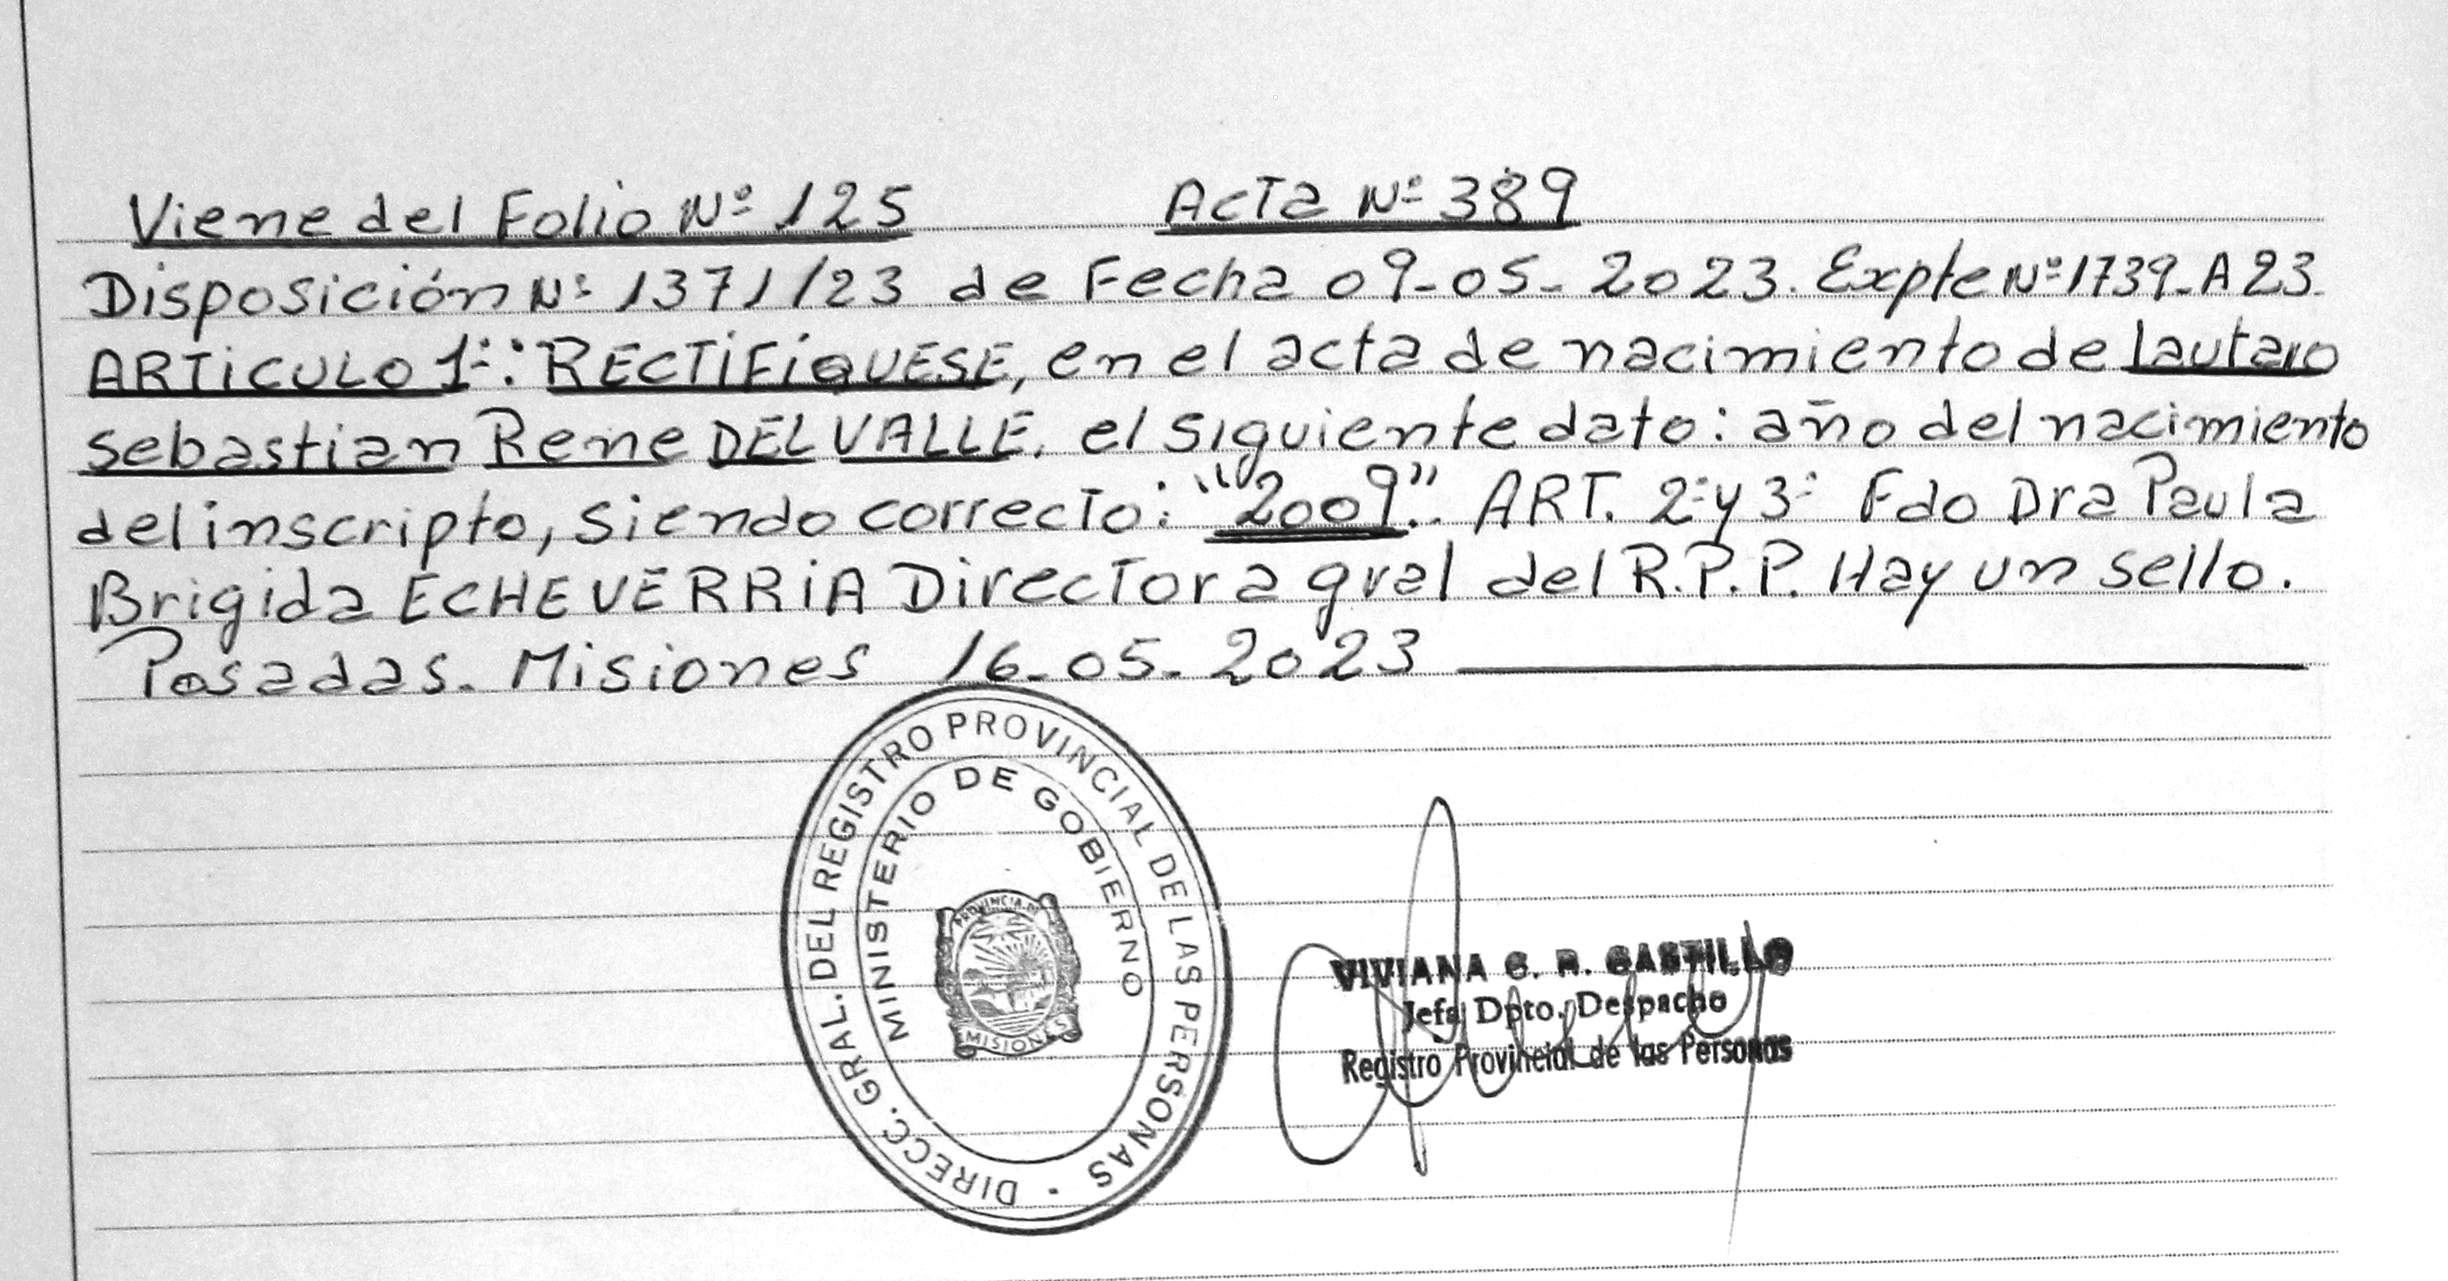 Viene del Folio Nº 125 Acta Nº 389
Disposición Nº 1371/23 de Fecha 09-05-2023. Expte Nº 1739-A 23.
ARTICULO 1º: RECTIFIQUESE, en el acta de nacimiento de Lautaro
Sebastian Rene DEL VALLE. el siguiente dato: año del nacimiento
del inscripto, siendo correcto: "2009". ART. 2º y 3º Fdo Dra Paula
Brigida ECHEVERRIA Directora gral del R.P.P. Hay un sello.
Posadas. Misiones 16-05-2023
DIRECC. GRAL. DEL REGISTRO PROVINCIAL DE LAS PERSONAS
MINISTERIO DE GOBIERNO
PROVINCIA DE
MISIONES
VIVIANA C. R. CASTILLO
Jefa Dpto. Despacho
Registro Provincial de las Personas